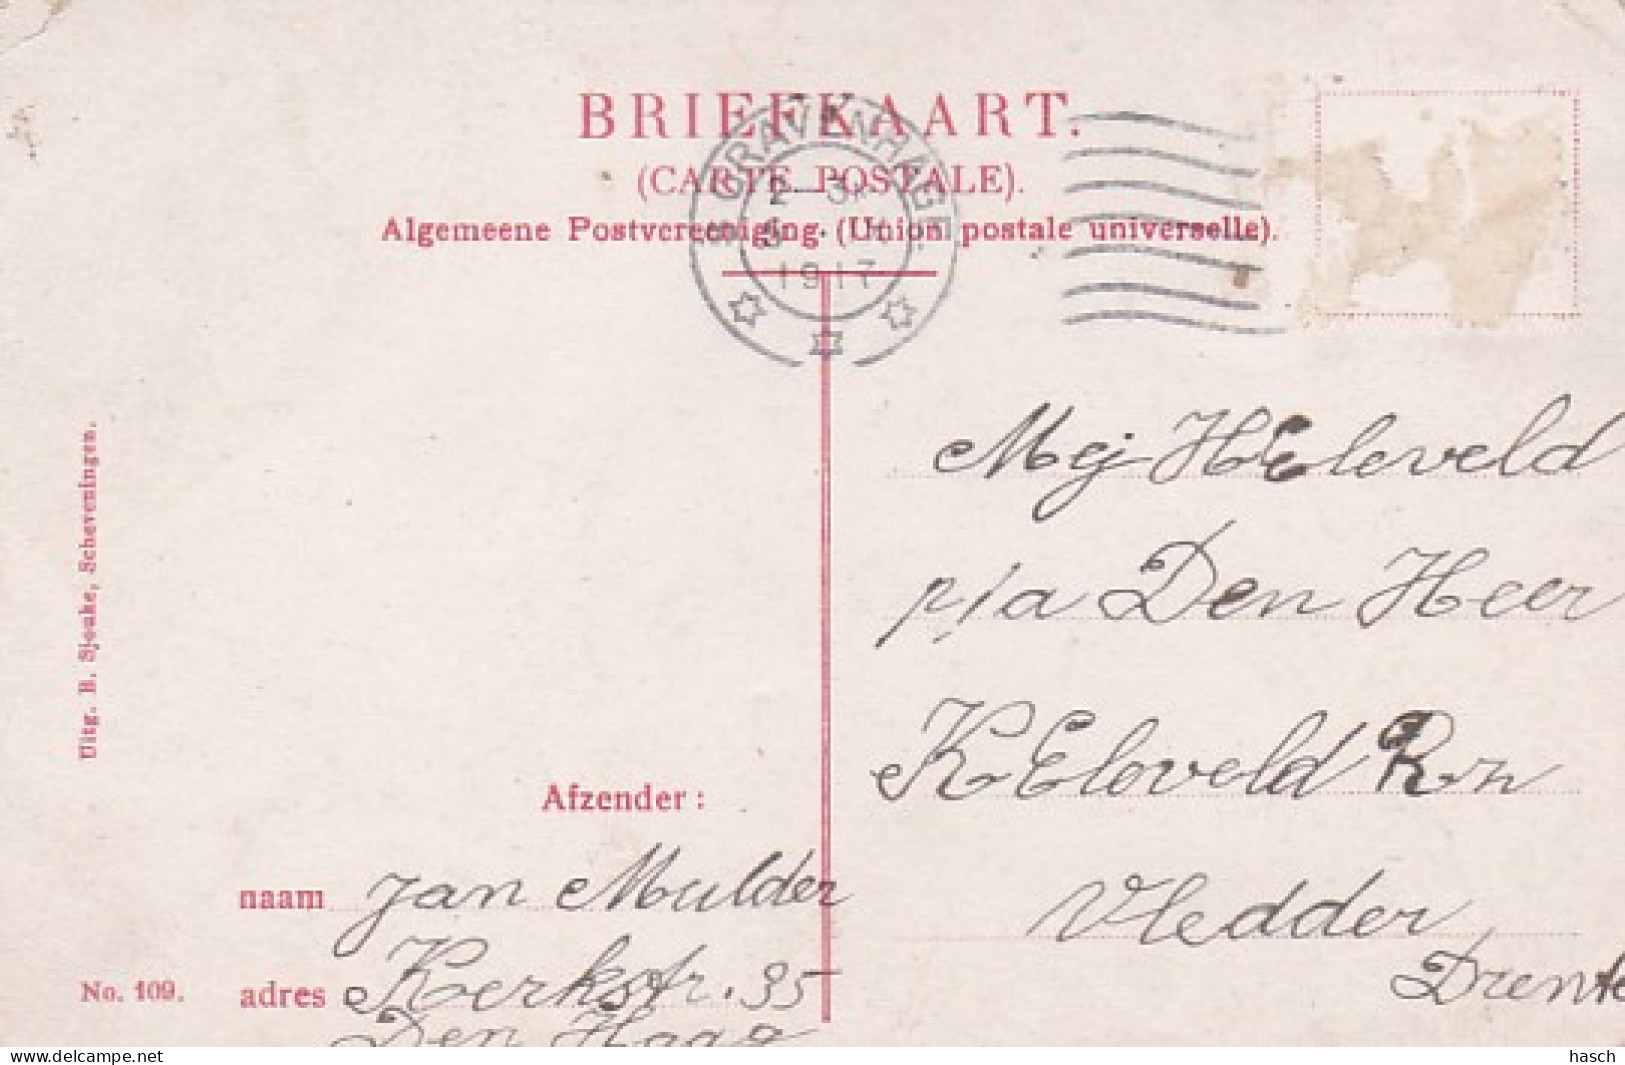 BRIEFKAART.
(CARTE POSTALE).
Algemeene Postvereeniging (Union postale universelle).
'S GRAVENHAGE
2 3
1917
Uitg. B. Sjouke, Scheveningen.
Mej H Eleveld
p/a Den Heer
K Eleveld Rzn
Vledder
Drente
Afzender:
naam Jan Mulder
No. 109. adres Kerkstr. 35
Den Haag
>www.delcampe.net
hasch